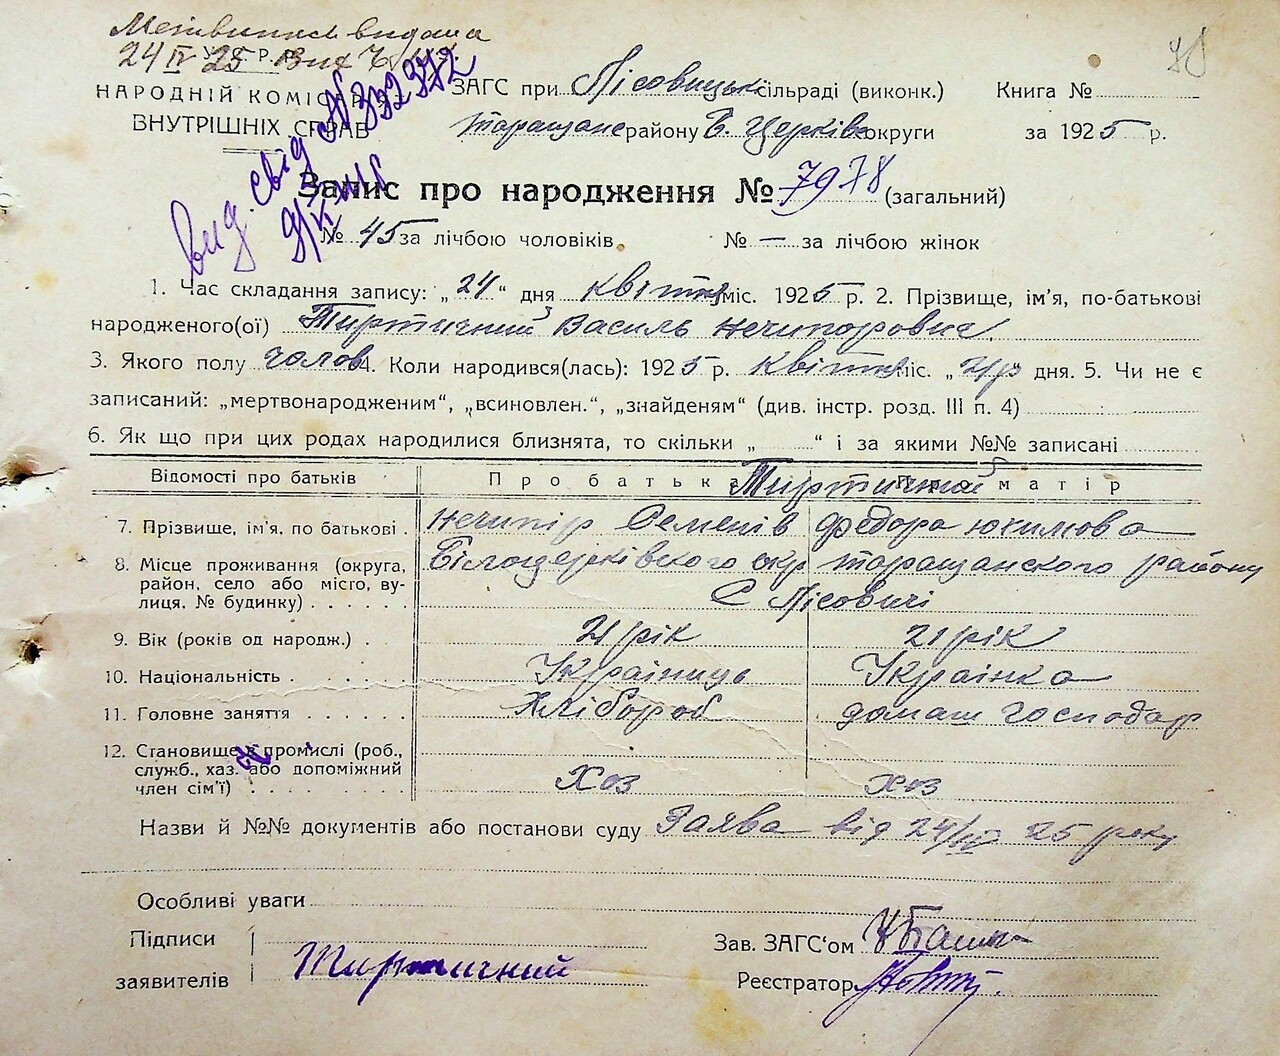 видана
24 IV 25
У.С.Р.Р.
НАРОДНІЙ КОМІСАР
ВНУТРІШНІХ СПРАВ
вид. свід № 332372
78
ЗАГС при Лісовицьк сільраді (виконк.) Книга №
таращанс району Б. Церків округи за 1925 р.
Запис про народження № 7978 (загальний)
№ 45 за лічбою чоловіків. № — за лічбою жінок
1. Час складання запису: „24“ дня квітня міс. 1925 р. 2. Прізвище, ім’я, по-батькові
народженого(ої) Тиртичний Василь Нечипорович
3. Якого полу чолов 4. Коли народився(лась): 1925 р. квітня міс. „ дня. 5. Чи не є
записаний: „мертвонародженим“, „всиновлен.“, „знайденям“ (див. інстр. розд. III п. 4)
6. Як що при цих родах народилися близнята, то скільки „ “ і за якими №№ записані
Відомості про батьків Про батька Про матір
Тиртичний
7. Прізвище, ім’я, по батькові . Нечипір Семенів Федора Юхимова
8. Місце проживання (округа, Білоцерківского окр таращанского району
район, село або місто, ву-
лиця, № будинку) . . . . . . С Лісовичі
9. Вік (років од народж.) . 21 рік 21 рік
10. Національність . . . . . . Українець Українка
11. Головне заняття . . . . . . Хлібороб домаш господар
12. Становище в промислі (роб.,
служб., хаз. або допоміжний
член сім’ї) . . . . . . . . . хоз хоз
Назви й №№ документів або постанови суду Заява від 24/IV 25 року
Особливі уваги
Підписи
заявителів Тиртичний
Зав. ЗАГС‘ом
Реєстратор